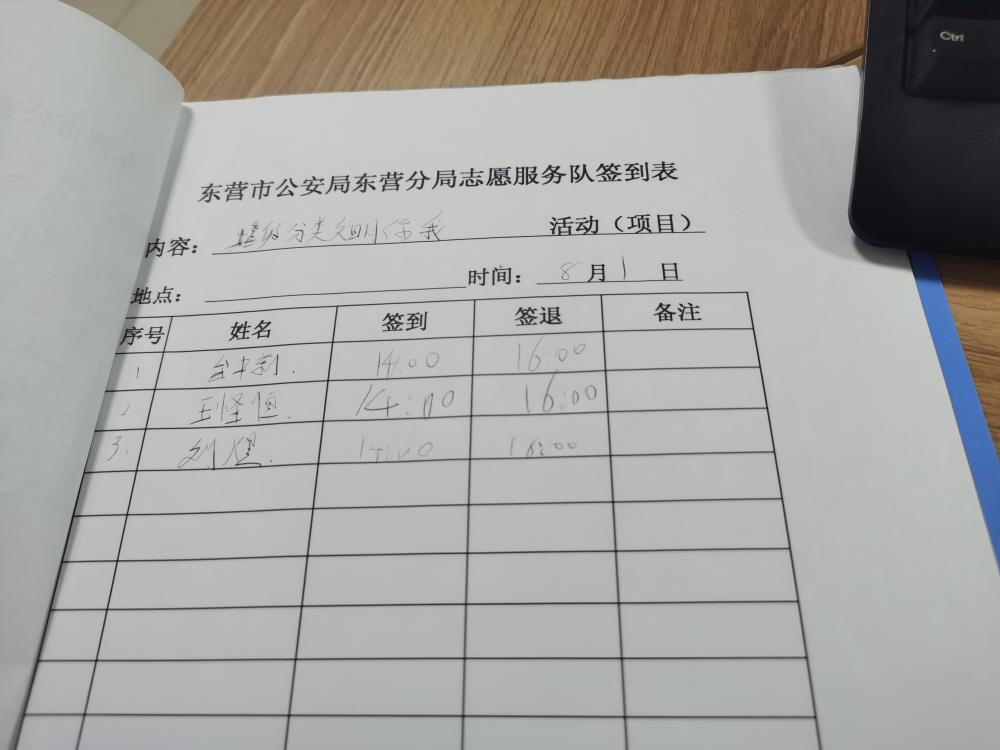 Ctrl
东营市公安局东营分局志愿服务队签到表
内容： 垃圾分类文明你我 活动（项目）
地点： 时间： 8月1日
序号 姓名 签到 签退 备注
1 14:00 16:00
2 王怪恒 14:00 16:00
3. 刘煜. 14:00 16:00